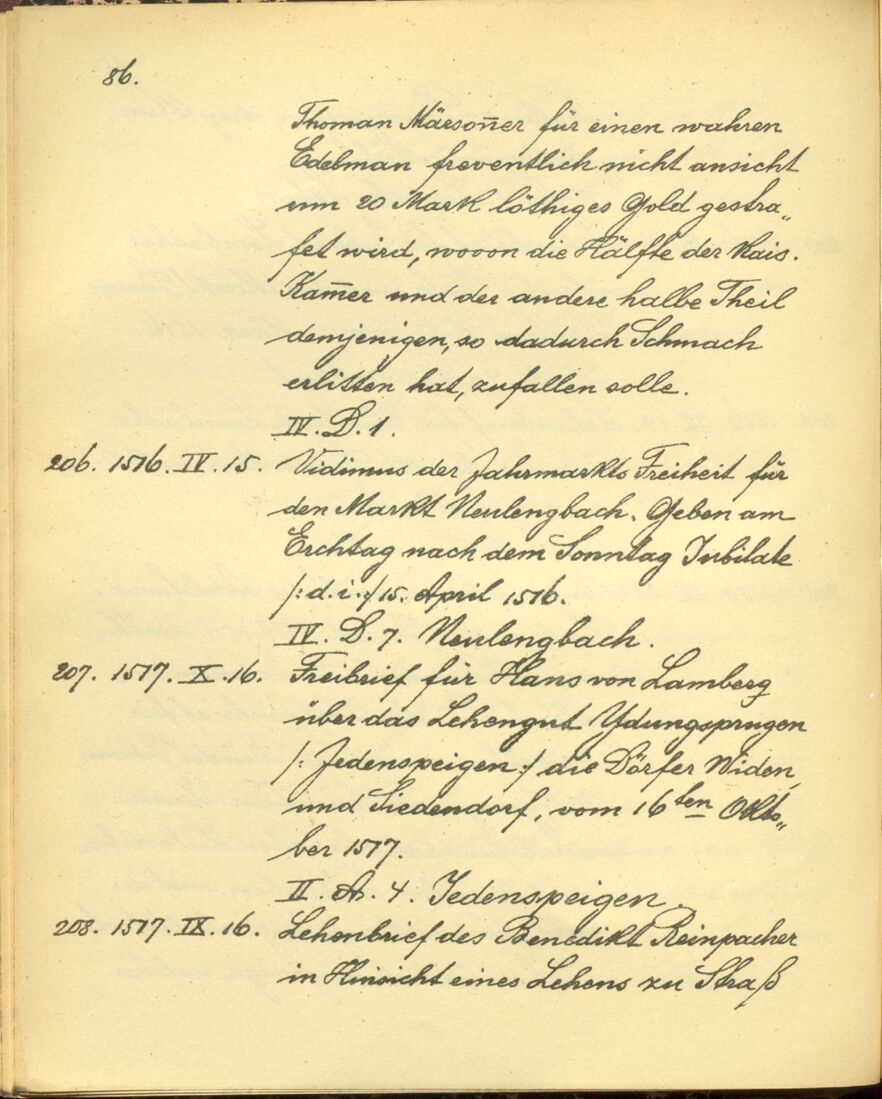 86.
Thoman Märsom̅er für einen wahren
Edelman freventlich nicht ansicht
um 20 Mark löthiges Gold gestra„
fet wird, wovon die Hälfte der Kais.
Kam̅er und der andere halbe Theil
demjenigen, so dadurch Schmach
erlitten hat, zufallen solle.
IV. D. 1.
206. 1516. IV. 15. Vidimus der Jahrmarkts Freiheit für
den Markt Neulengbach. Geben am
Erchtag nach dem Sonntag Jubilate
/: d. i. :/ 15. April 1516.
IV. D. 7. Neulengbach.
207. 1517. X. 16. Freibrief für Hans von Lamberg
über das Lehengut Ydungsprugen
/: Jedenspeigen :/ die Dörfer Widen,
und Siedendorf, vom 16ten Okto„
ber 1517.
II. A. 4. Jedenspeigen.
208. 1517. IX. 16. Lehenbrief des Benedikt Reinpacher
in Hinsicht eines Lehens zu Straß